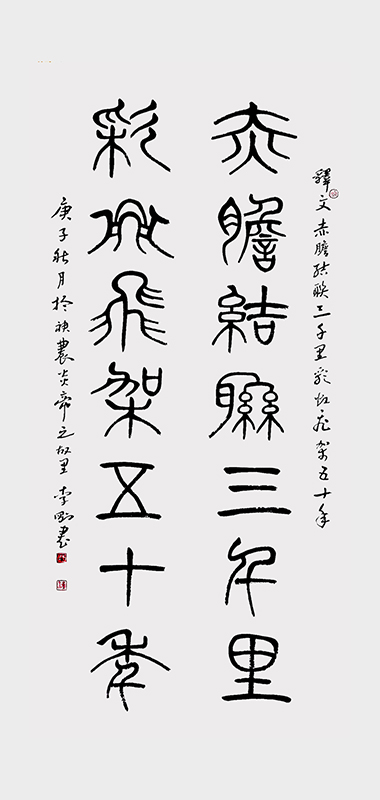 釋文赤膽結聯三千里彩虹飛架五十年
赤膽結聯三千里
彩虹飛架五十年
庚子秋月於神農炎帝之故里李剛書